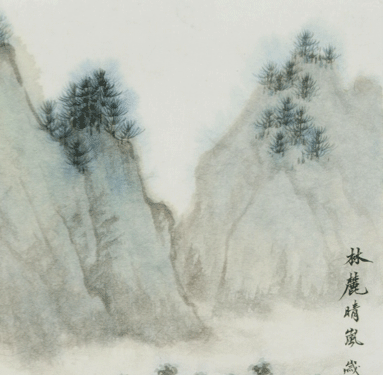 林麓晴嵐歲